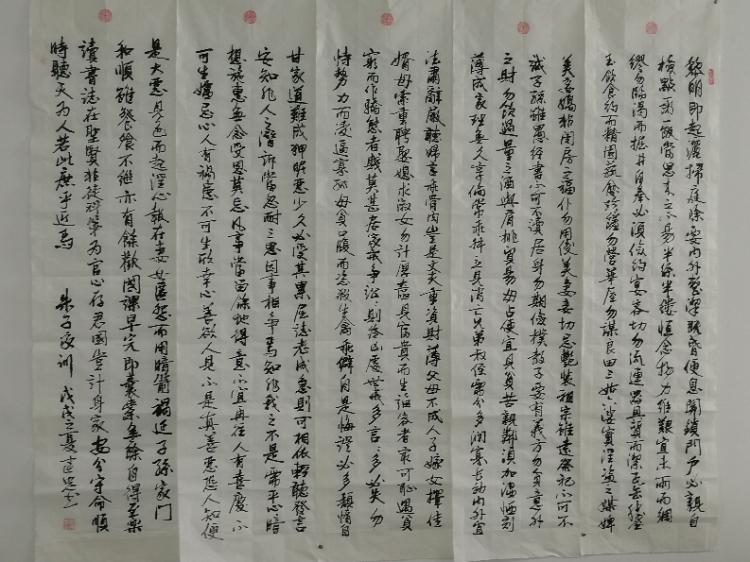 黎明即起灑掃庭除要內外整潔既昏便息關鎖門戶必親自
檢點粥一飯當思來之不易半絲半縷恆念物力維艱宜未雨而綢
繆勿臨渴而掘井自奉必須儉約宴客切勿流連器具質而潔瓦缶勝金
玉飲食約而精園蔬愈珍饈勿營華屋勿謀良田三姑六婆實淫盜之媒婢
美妾嬌非閨房之福仆勿用俊美妻妾切忌艷裝祖宗雖遠祭祀不可不
誠子孫雖愚經書不可不讀居身務期儉樸教子要有義方勿貪意外
之財勿飲過量之酒與肩挑貿易毋占便宜見貧苦親鄰須加溫恤刻
薄成家理無久享倫常乖舛立見消亡兄弟叔侄需分多潤寡長幼內外宜
法肅辭嚴聽婦言乖骨肉豈是丈夫重資財薄父母不成人子嫁女擇佳
婿毋索重聘娶媳求淑女勿計厚奩見富貴而生諂容者最可恥遇貧
窮而作驕態者賤莫甚居家戒爭訟訟則終凶處世戒多言言多必失勿
恃勢力而凌逼寡孤毋貪口腹而恣殺生禽乖僻自是悔誤必多頹惰自
甘家道難成狎昵惡少久必受其累屈志老成急則可相依輕聽發言
安知非人之譖訴當忍耐三思因事相爭焉知非我之不是需平心暗
想施惠無念受恩莫忘凡事當留餘地得意不宜再往人有喜慶不
可生嫉忌心人有禍患不可生欣幸心善欲人見不是真善惡恐人知便
是大惡見色而起淫心報在妻女匿怨而用暗箭禍延子孫家門
和順雖饔飧不繼亦有餘歡國課早完即囊橐無餘自得至樂
讀書志在聖賢非徒科第為官心存君國豈計身家安分守命順
時聽天為人若此庶乎近焉 朱子家訓 戊戌之夏